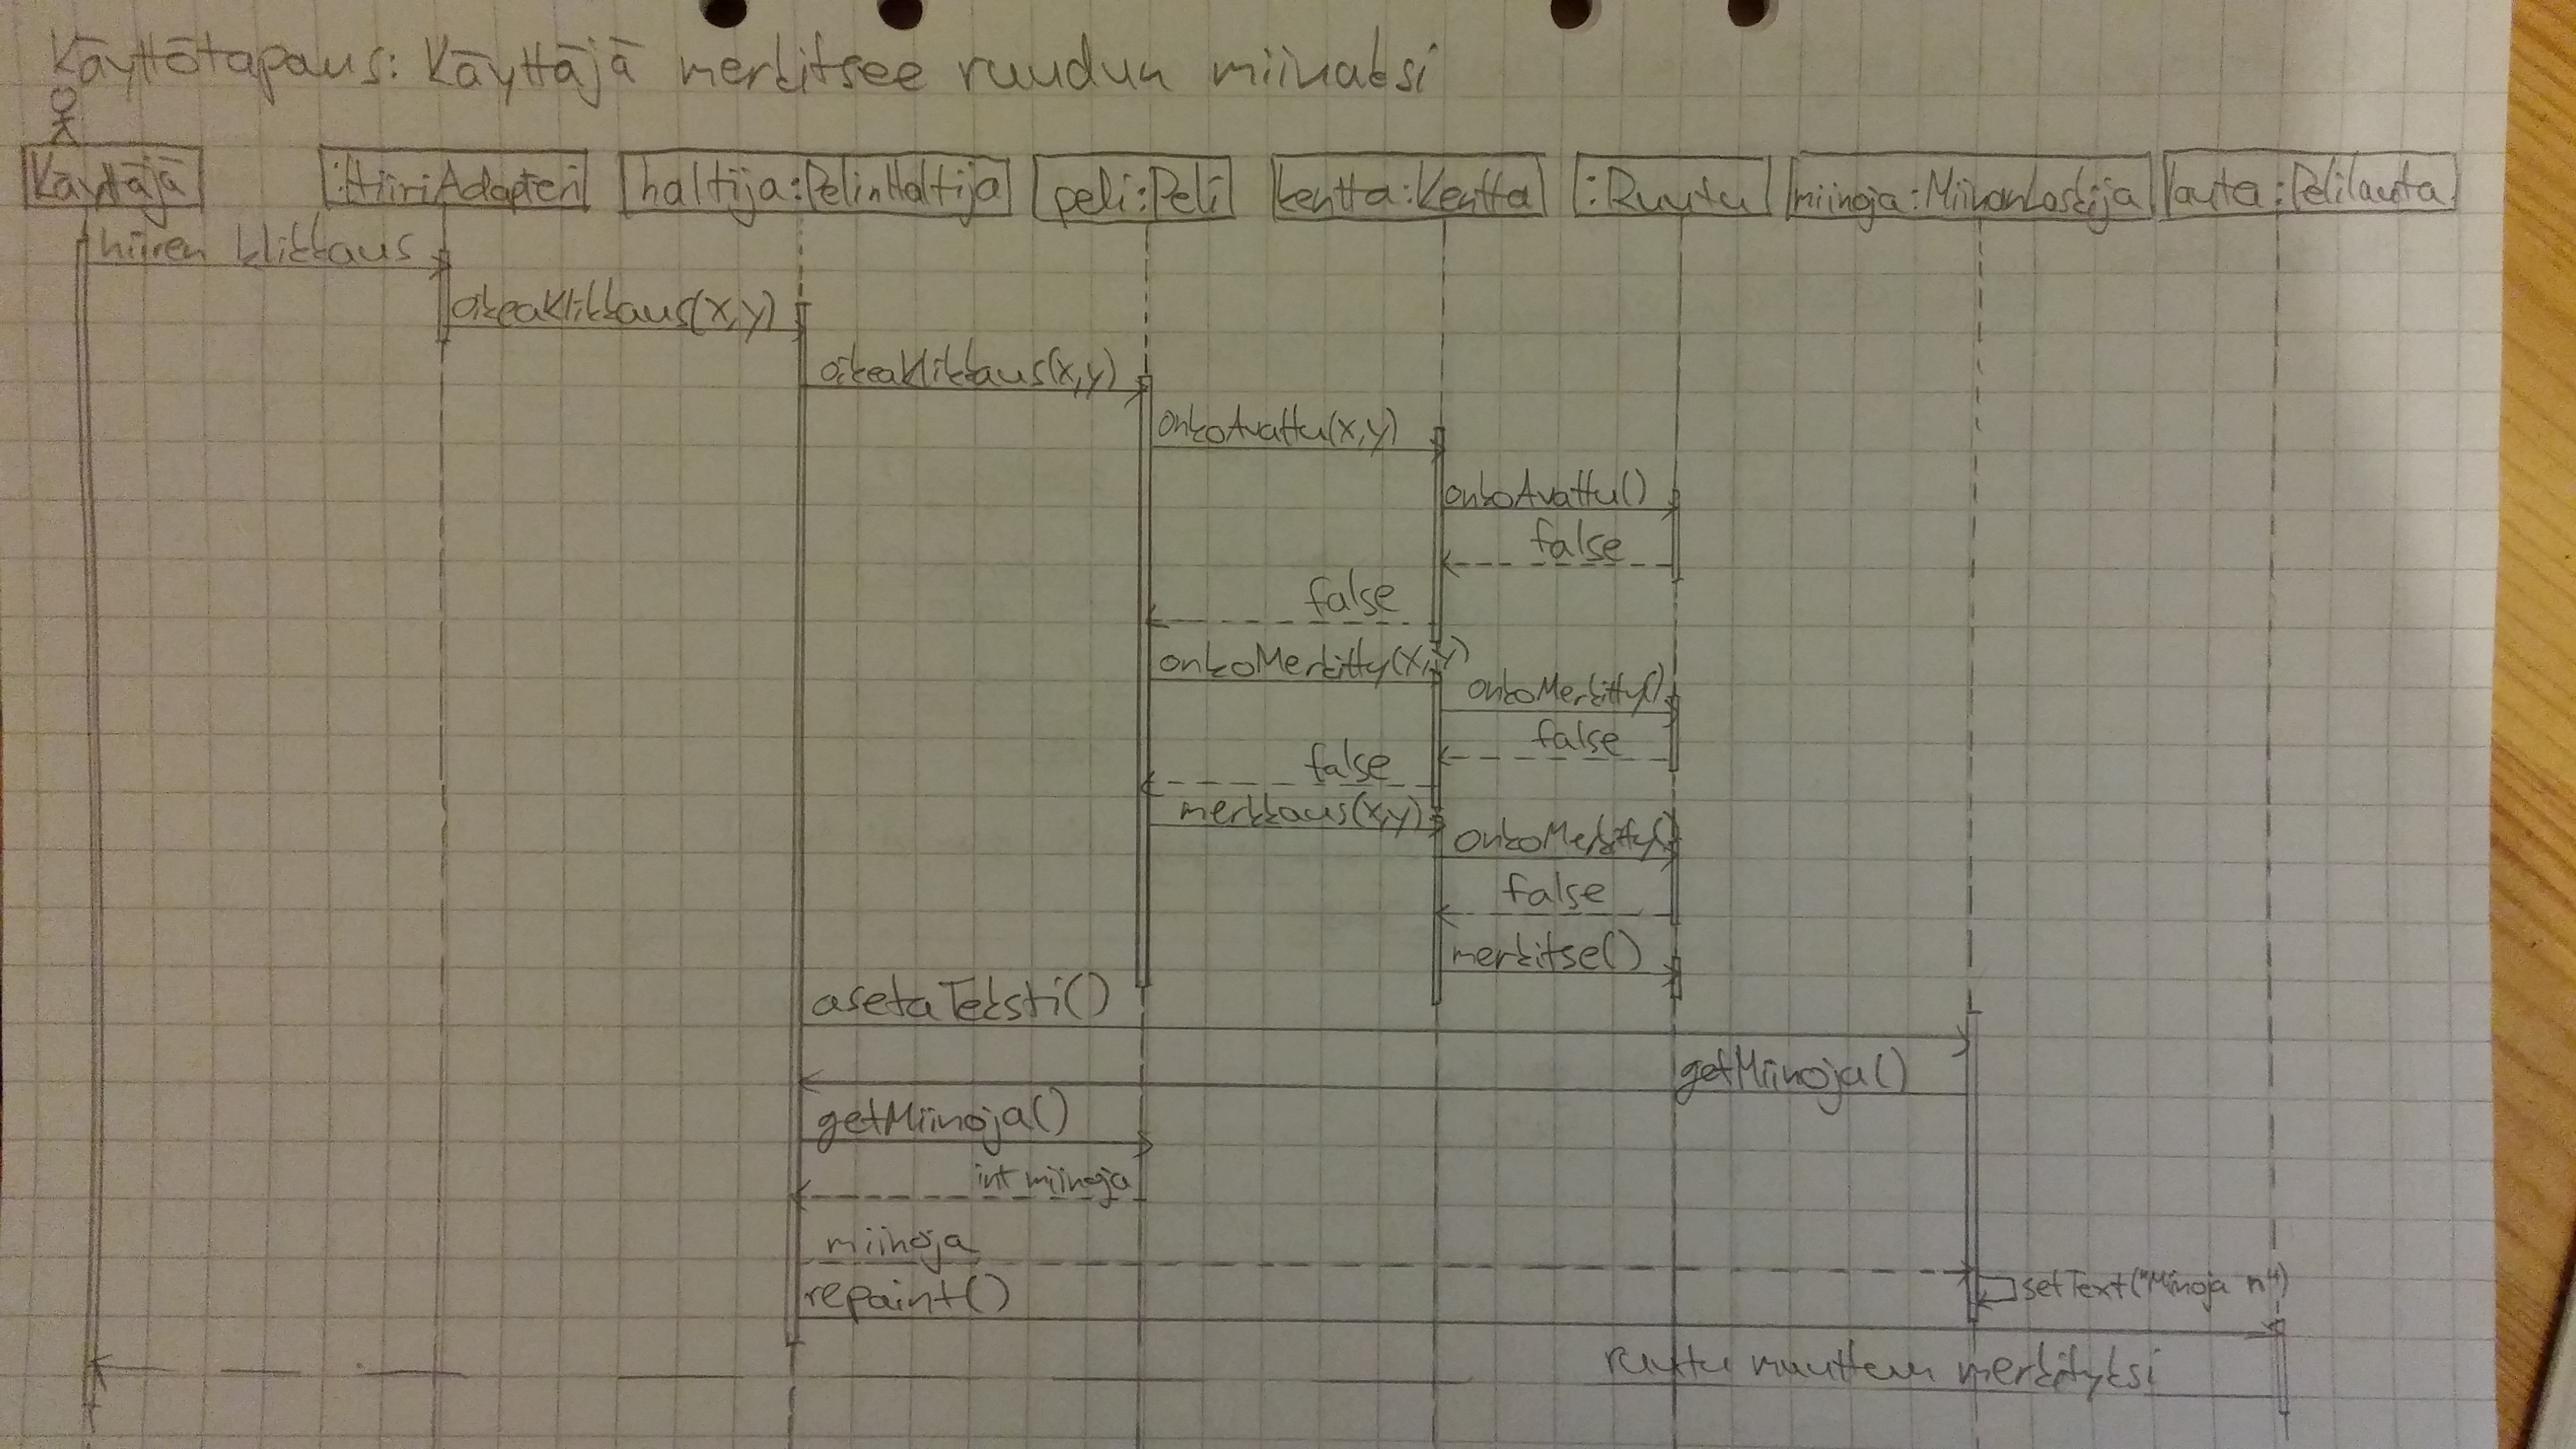 Käyttötapaus: Käyttäjä merkitsee ruudun miinaksi
Käyttäjä :HiiriAdapteri haltija:PelinHaltija peli:Peli kentta:Kentta :Ruutu miinoja:MiinanLaskija lauta:Pelilauta
hiiren klikkaus
oikeaKlikkaus(x,y)
oikeaKlikkaus(x,y)
onkoAvattu(x,y)
onkoAvattu()
false
false
onkoMerkitty(x,y)
onkoMerkitty()
false
false
merkkaus(x,y)
onkoMerkitty()
false
merkitse()
asetaTeksti()
getMiinoja()
getMiinoja()
int miinoja
miinoja
setText("Miinoja n")
repaint()
ruutu muuttuu merkityksi